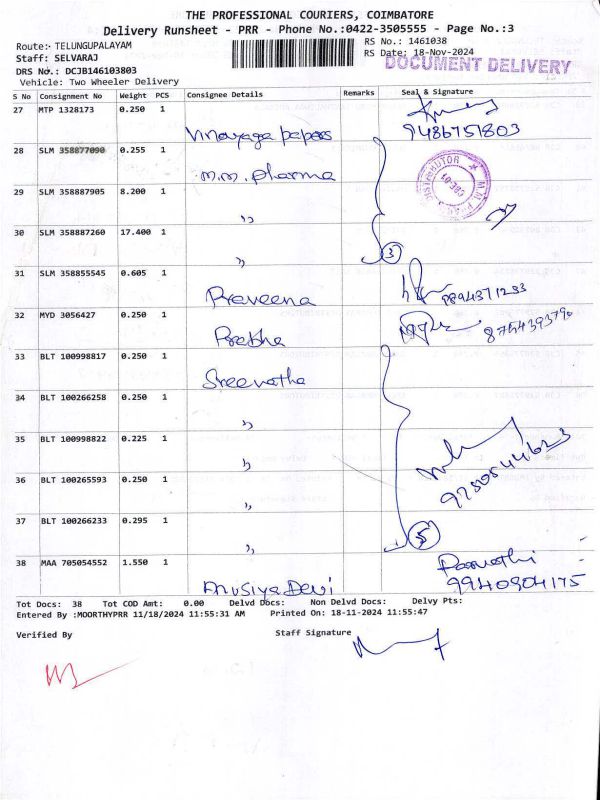 THE PROFESSIONAL COURIERS, COIMBATORE
Delivery Runsheet - PRR - Phone No.:0422-3505555 - Page No.:3
Route:- TELUNGUPALAYAM
Staff: SELVARAJ
DRS No.: DCJB146103803
Vehicle: Two Wheeler Delivery
RS No.: 1461038
RS Date: 18-Nov-2024
DOCUMENT DELIVERY
S No Consignment No Weight PCS Consignee Details Remarks Seal & Signature
27 MTP 1328173 0.250 1
Vinayaga papers 9486751803
28 SLM 358877090 0.255 1
M.M. Pharma
29 SLM 358887905 8.200 1
,,
30 SLM 358887260 17.400 1
,, 3
31 SLM 358855545 0.605 1
Praveena
32 MYD 3056427 0.250 1
Prebha
33 BLT 100998817 0.250 1
Sreevatha
34 BLT 100266258 0.250 1
,,
35 BLT 100998822 0.225 1
,,
36 BLT 100265593 0.250 1
,,
37 BLT 100266233 0.295 1
,, 5
38 MAA 705054552 1.550 1
Anusiya Devi Parvathi
9940904175
Tot Docs: 38 Tot COD Amt: 0.00 Delvd Docs: Non Delvd Docs: Delvy Pts:
Entered By :MOORTHYPRR 11/18/2024 11:55:31 AM Printed On: 18-11-2024 11:55:47
Verified By Staff Signature